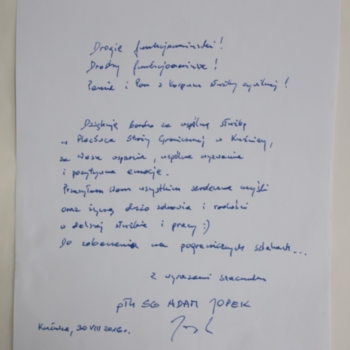 Drogie funkcjonariuszki!
Drodzy funkcjonariusze!
Panie i Panowie z Korpusu służby cywilnej!
Dziękuję bardzo za wspólną służbę
w Placówce Straży Granicznej w Kuźnicy,
za Wasze wsparcie, wspólne wyzwania
i pozytywne emocje.
Przesyłam Wam wszystkim serdeczne myśli
oraz życzę dużo zdrowia i radości
w dalszej służbie i pracy :)
Do zobaczenia na pogranicznych szlakach...
Z wyrazami szacunku
płk SG ADAM JOPEK
Kuźnica, 30 VIII